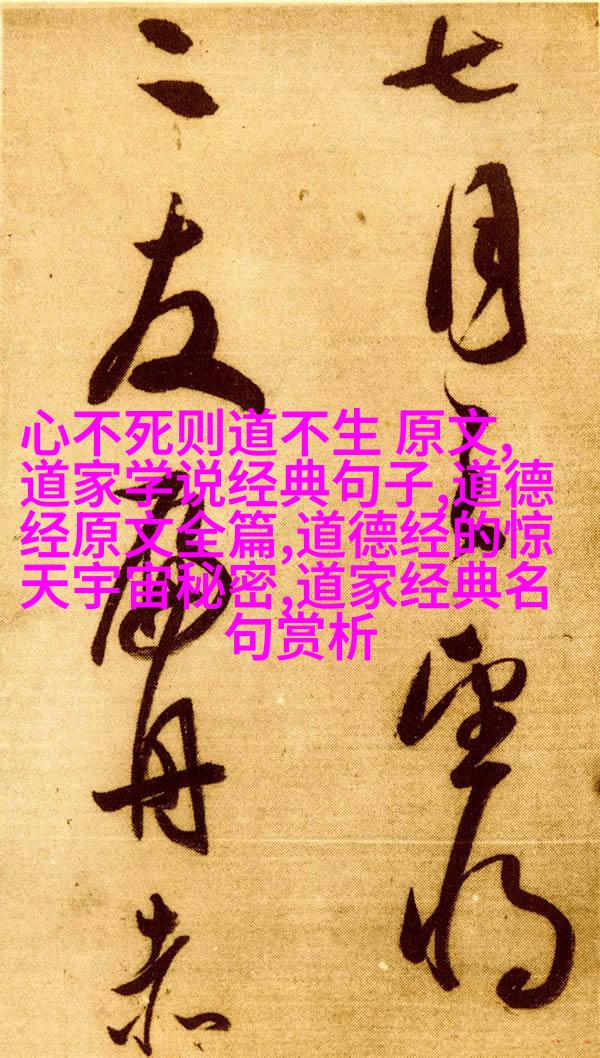 七月望将
二友舟赤
心不死则道不生 原文,
道家学说经典句子,道德
经原文全篇,道德经的惊
天宇宙秘密,道家经典名
句赏析